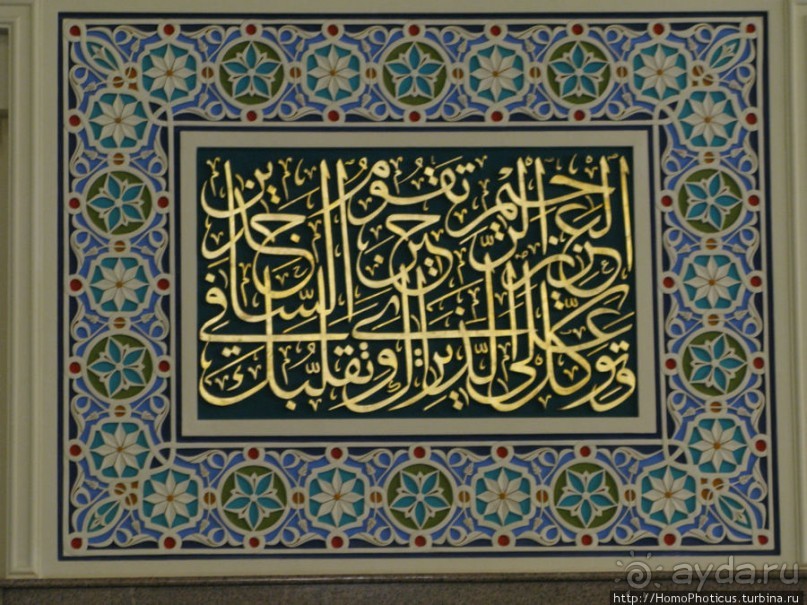 وتوكل على العزيز الرحيم الذي يراك حين تقوم وتقلبك في الساجدين
ayda.ru
http://HomoPhoticus.turbina.ru